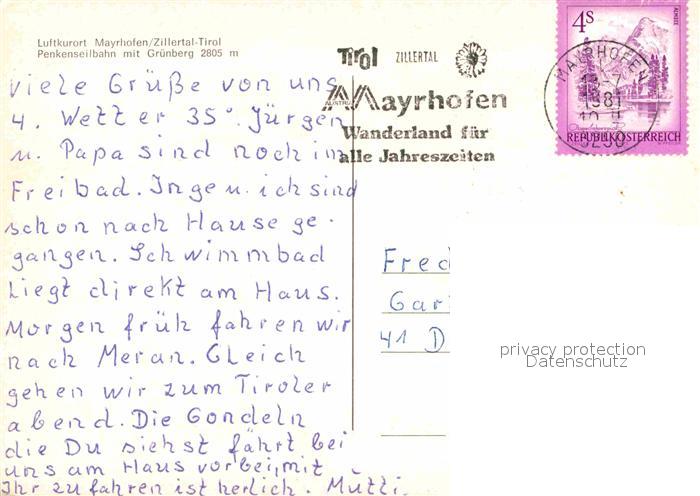 Luftkurort Mayrhofen/Zillertal-Tirol
Penkenseilbahn mit Grünberg 2805 m
viele Grüße von uns
4. Wetter 35°. Jürgen
u. Papa sind noch im
Freibad. Inge u. ich sind
schon nach Hause ge-
gangen. Schwimmbad
liegt direkt am Haus.
Morgen früh fahren wir
nach Meran. Gleich
gehen wir zum Tiroler
abend. Die Gondeln
die Du siehst fährt bei
uns am Haus vorbei, mit
Ihr zu fahren ist herlich. Mutti.
Tirol ZILLERTAL
AUSTRIA
Mayrhofen
Wanderland für
alle Jahreszeiten
MAYRHOFEN
1981
4S
ALMSEE
REPUBLIK ÖSTERREICH
Fred
Gar
41 D
privacy protection
Datenschutz